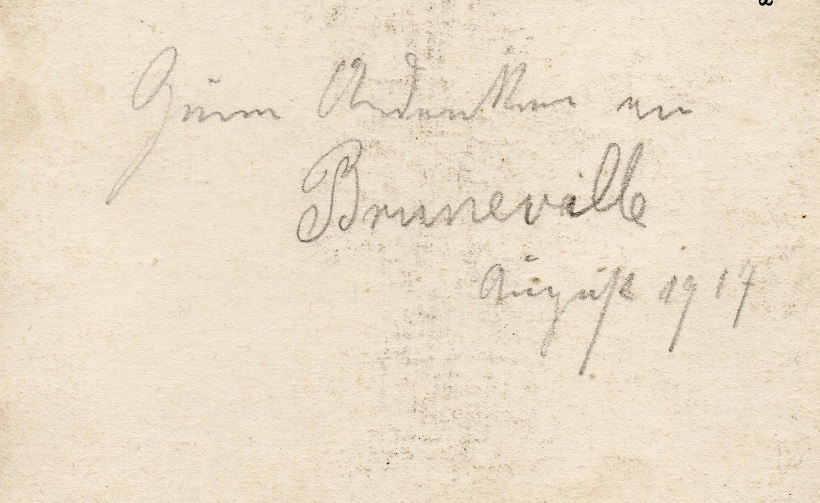 Zum Andenken an
Bruneville
August 1917